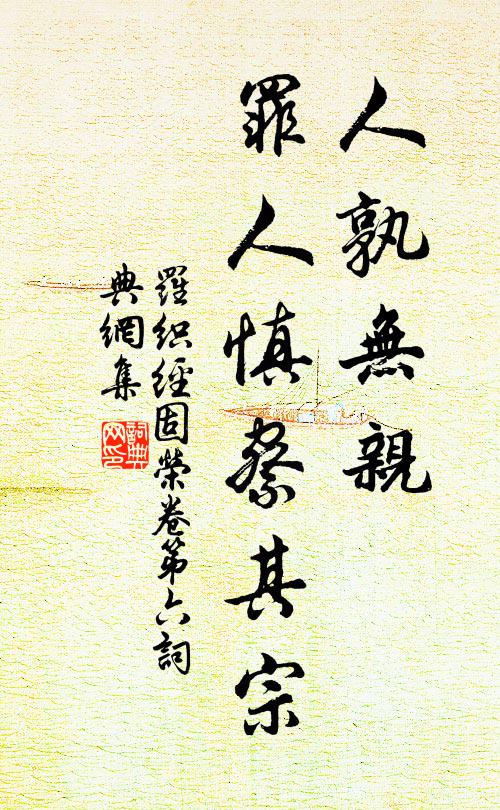 人孰無親
罪人慎察其宗
羅織經固榮卷第六詞
典網集
詞典
网印